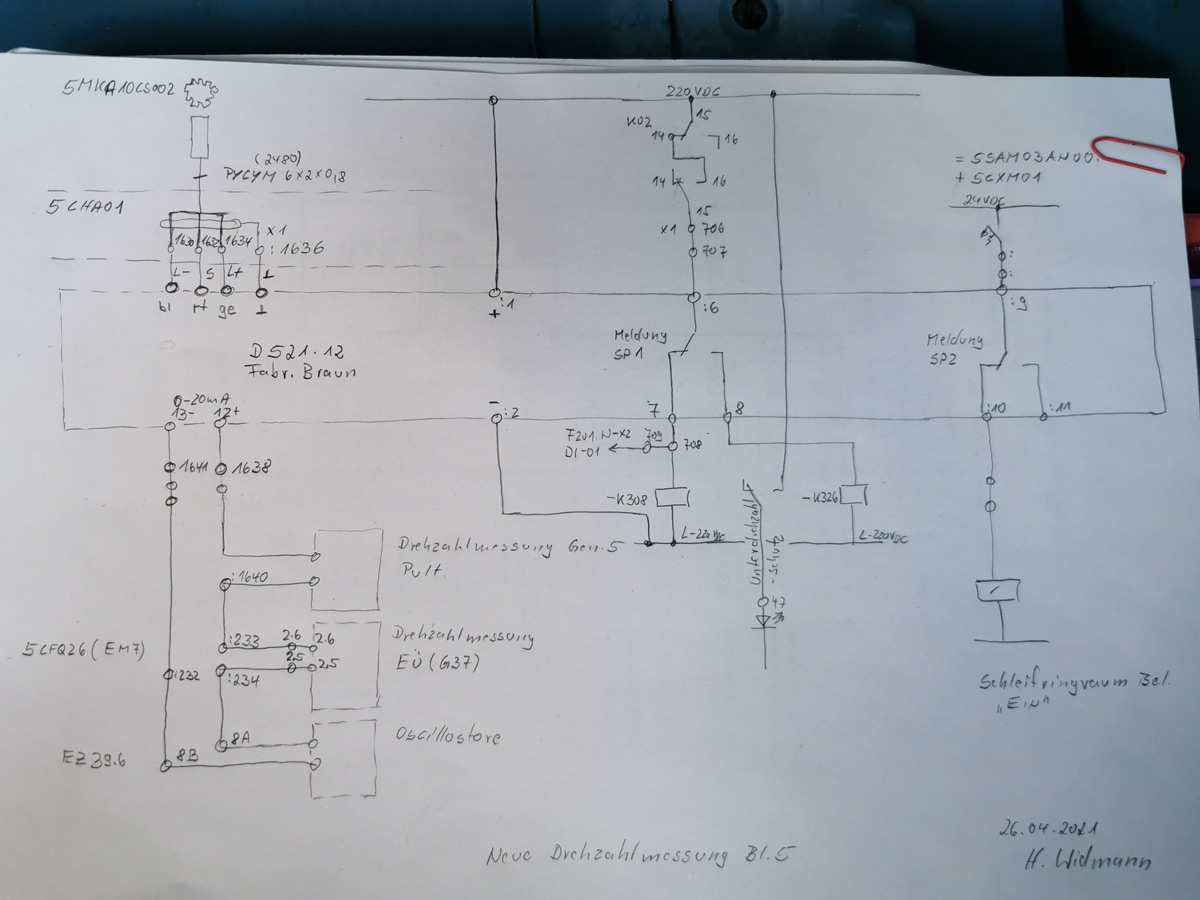 5MKA10CS002
220VDC
15
K02
14
16
(2480)
PYCYM 6x2x0,8
= 5SAM03AN00.
+ 5CXM01
24VDC
14
16
5CHA01
15
X1
1630
1632
1634
:1636
X1
706
707
L-
S
L+
⊥
bl
rt
ge
⊥
:1
+
:6
:9
D521.12
Fabr. Braun
Meldung
SP1
Meldung
SP2
0-20mA
13-
12+
-
:2
7
8
:10
:11
F201.N-X2
DI-01
709
708
1641
1638
-K308
-K326
L-220VDC
L-220VDC
Unterdrehzahl
-schutz
47
Drehzahlmessung Gen.5
Pult.
:1640
5CFQ26 (EM7)
:233
2.6
2.6
Drehzahlmessung
EÜ (G37)
:232
:234
2.5
2,5
Schleifringraum Bel.
"EIN"
8A
Oscillostore
EZ39.6
8B
26.04.2021
H. Widmann
Neue Drehzahlmessung Bl.5